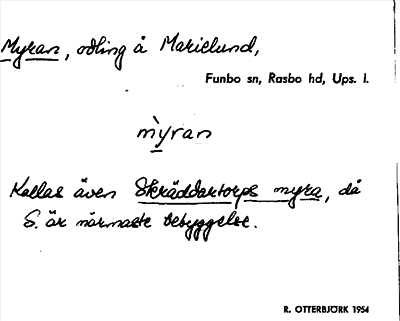 Myran, odling å Marielund,
Funbo sn, Rasbo hd, Ups. l.
mỳran
Kallas även Skräddartorps myra, då
S. är närmaste bebyggelse.
R. OTTERBJÖRK 1954